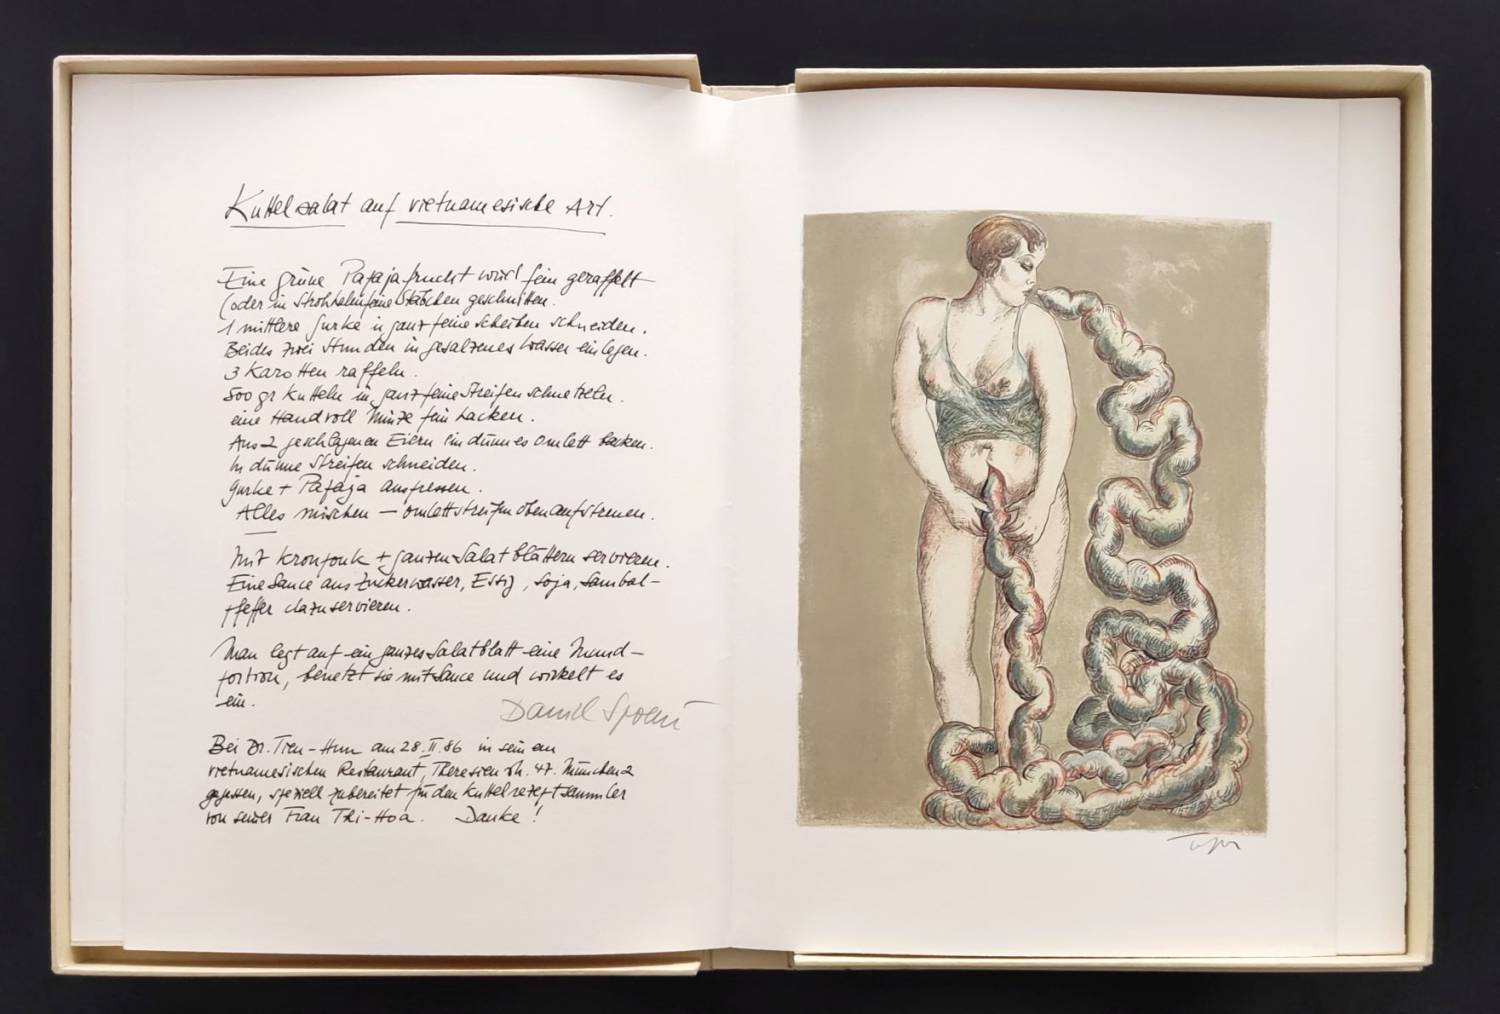 Kuttelsalat auf vietnamesische Art.
Eine grüne Papajafrucht wird fein geraffelt
(oder in Strohhalmfeine Stäbchen geschnitten.
1 mittlere Gurke in ganz feine Scheiben schneiden.
Beides zwei Stunden in gesalzenes Wasser einlegen.
3 Karotten raffeln.
500 gr Kutteln in ganz feine Streifen schnetzeln.
eine Handvoll Minze fein hacken.
Aus 2 geschlagenen Eiern ein dünnes Omlett backen.
In dünne Streifen schneiden.
Gurke + Papaja auspressen.
Alles mischen — Omlettstreifen obenaufstreuen.
Mit Kronpouk + ganzen Salatblättern servieren.
Eine Sauce aus Zuckerwasser, Essig, Soja, Sambal-
pfeffer dazu servieren.
Man legt auf ein ganzes Salatblatt eine Mund-
portion, benetzt sie mit Sauce und wickelt es
ein.
Daniel Spoerri
Bei Dr. Tren-Hun am 28.II.86 in seinem
vietnamesischen Restaurant, Theresien str. 47. München 2
gegessen, speziell zubereitet für den Kuttelrezeptsammler
von seiner Frau Thi-Hoa. Danke!
Topor